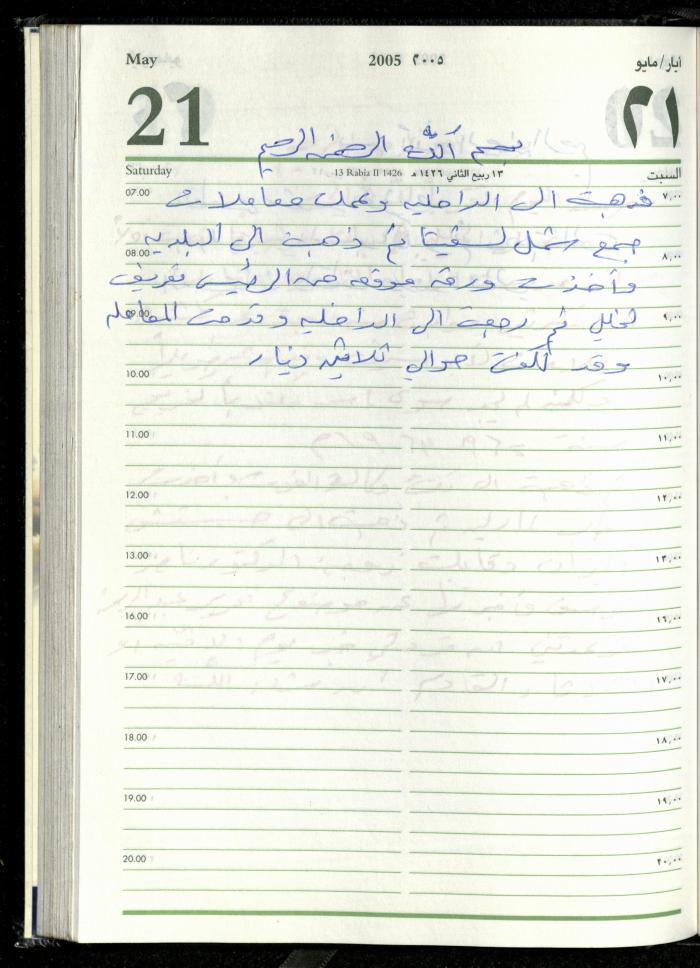 May 2005 ٢٠٠٥ ايار/مايو
21 ٢١
بسم الله الرحمن الرحيم
Saturday 13 Rabia II 1426 ١٣ ربيع الثاني ١٤٢٦ هـ السبت
07.00 ذهبت الى الداخليه وعملت معاملات ٧,٠٠
جمع شمل ثم ذهبت الى البلديه
08.00 ٨,٠٠
وأخذت ورقة موقعه من الرئيس تعريف
09.00 ثم رجعت الى الداخليه وقدمت المعامله ٩,٠٠
وقد كلفت حوالي ثلاثين دينار
10.00 ١٠,٠٠
11.00 ١١,٠٠
12.00 ١٢,٠٠
13.00 ١٣,٠٠
16.00 ١٦,٠٠
17.00 ١٧,٠٠
18.00 ١٨,٠٠
19.00 ١٩,٠٠
20.00 ٢٠,٠٠